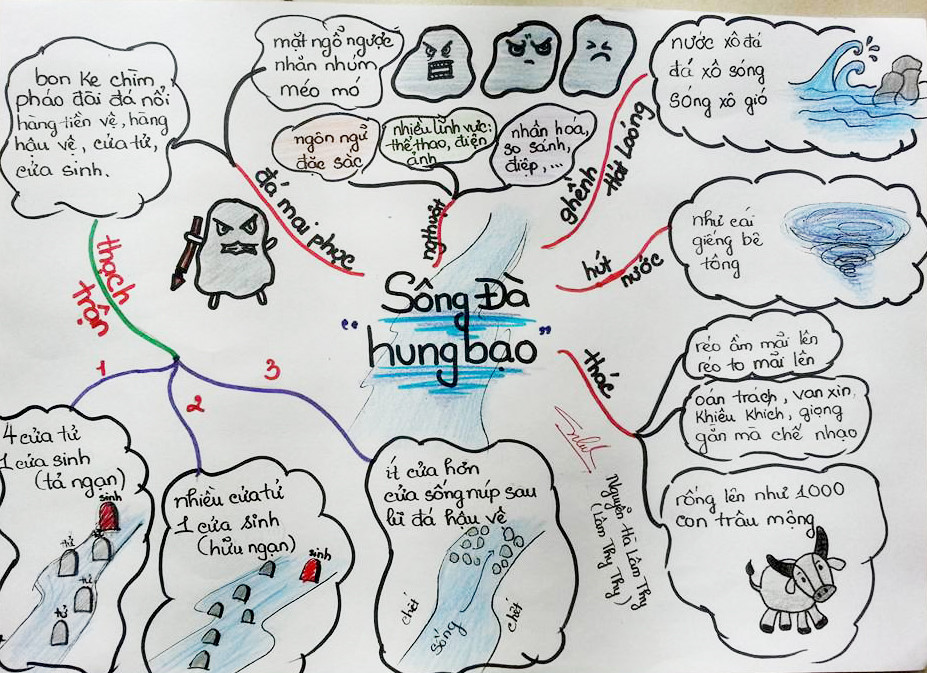 Sông Đà
"hung bạo"
đá mai phục
mặt ngổ ngược
nhăn nhúm
méo mó
bon ke chìm,
pháo đài đá nổi
hàng tiền vệ, hàng
hậu vệ, cửa tử,
cửa sinh.
ng thuật
ngôn ngữ
đặc sắc
nhiều lĩnh vực:
thể thao, điện
ảnh
nhân hóa,
so sánh,
điệp, ...
ghềnh
Hát Loóng
nước xô đá
đá xô sóng
sóng xô gió
hút
nước
như cái
giếng bê
tông
thác
réo ầm mãi lên
réo to mãi lên
oán trách, van xin,
khiêu khích, giọng
gằn mà chế nhạo
rống lên như 1000
con trâu mộng
thạch
trận
1
4 cửa tử
1 cửa sinh
(tả ngạn)
sinh
tử
tử
tử
tử
2
nhiều cửa tử
1 cửa sinh
(hữu ngạn)
sinh
3
ít cửa hơn
cửa sống núp sau
lũ đá hậu vệ
chết
sống
chết
Nguyễn Hà Lâm Thy
(Lâm Thy Thy)